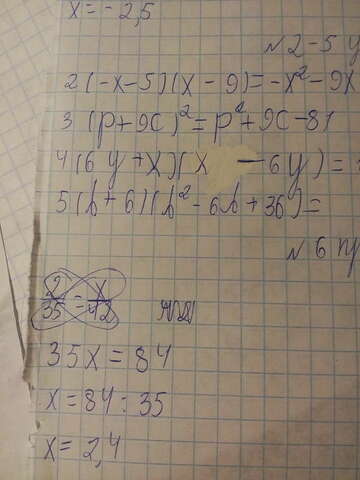 x = - 2,5
№ 2-5 у
2 (-x-5)(x - 9) = -x² - 9x
3 (p + 9c)² = p² + 9c - 81
4 (6y + x)(x - 6y) =
5 (b + 6)(b² - 6b + 36) =
№ 6 пр
2/35 = x/42
35x = 84
x = 84 : 35
x = 2,4